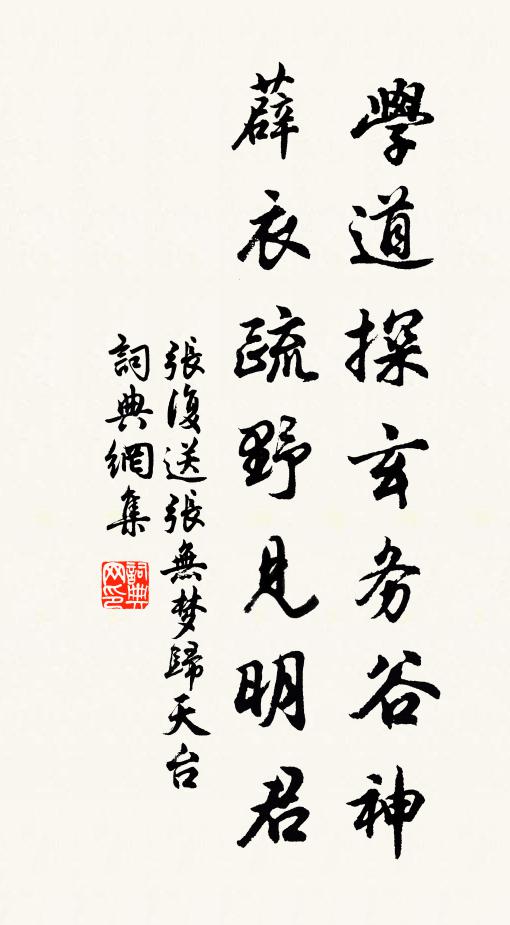 學道探玄务谷神
薜衣疏野見明君
張復送張無梦歸天台
詞典網集
詞典网印